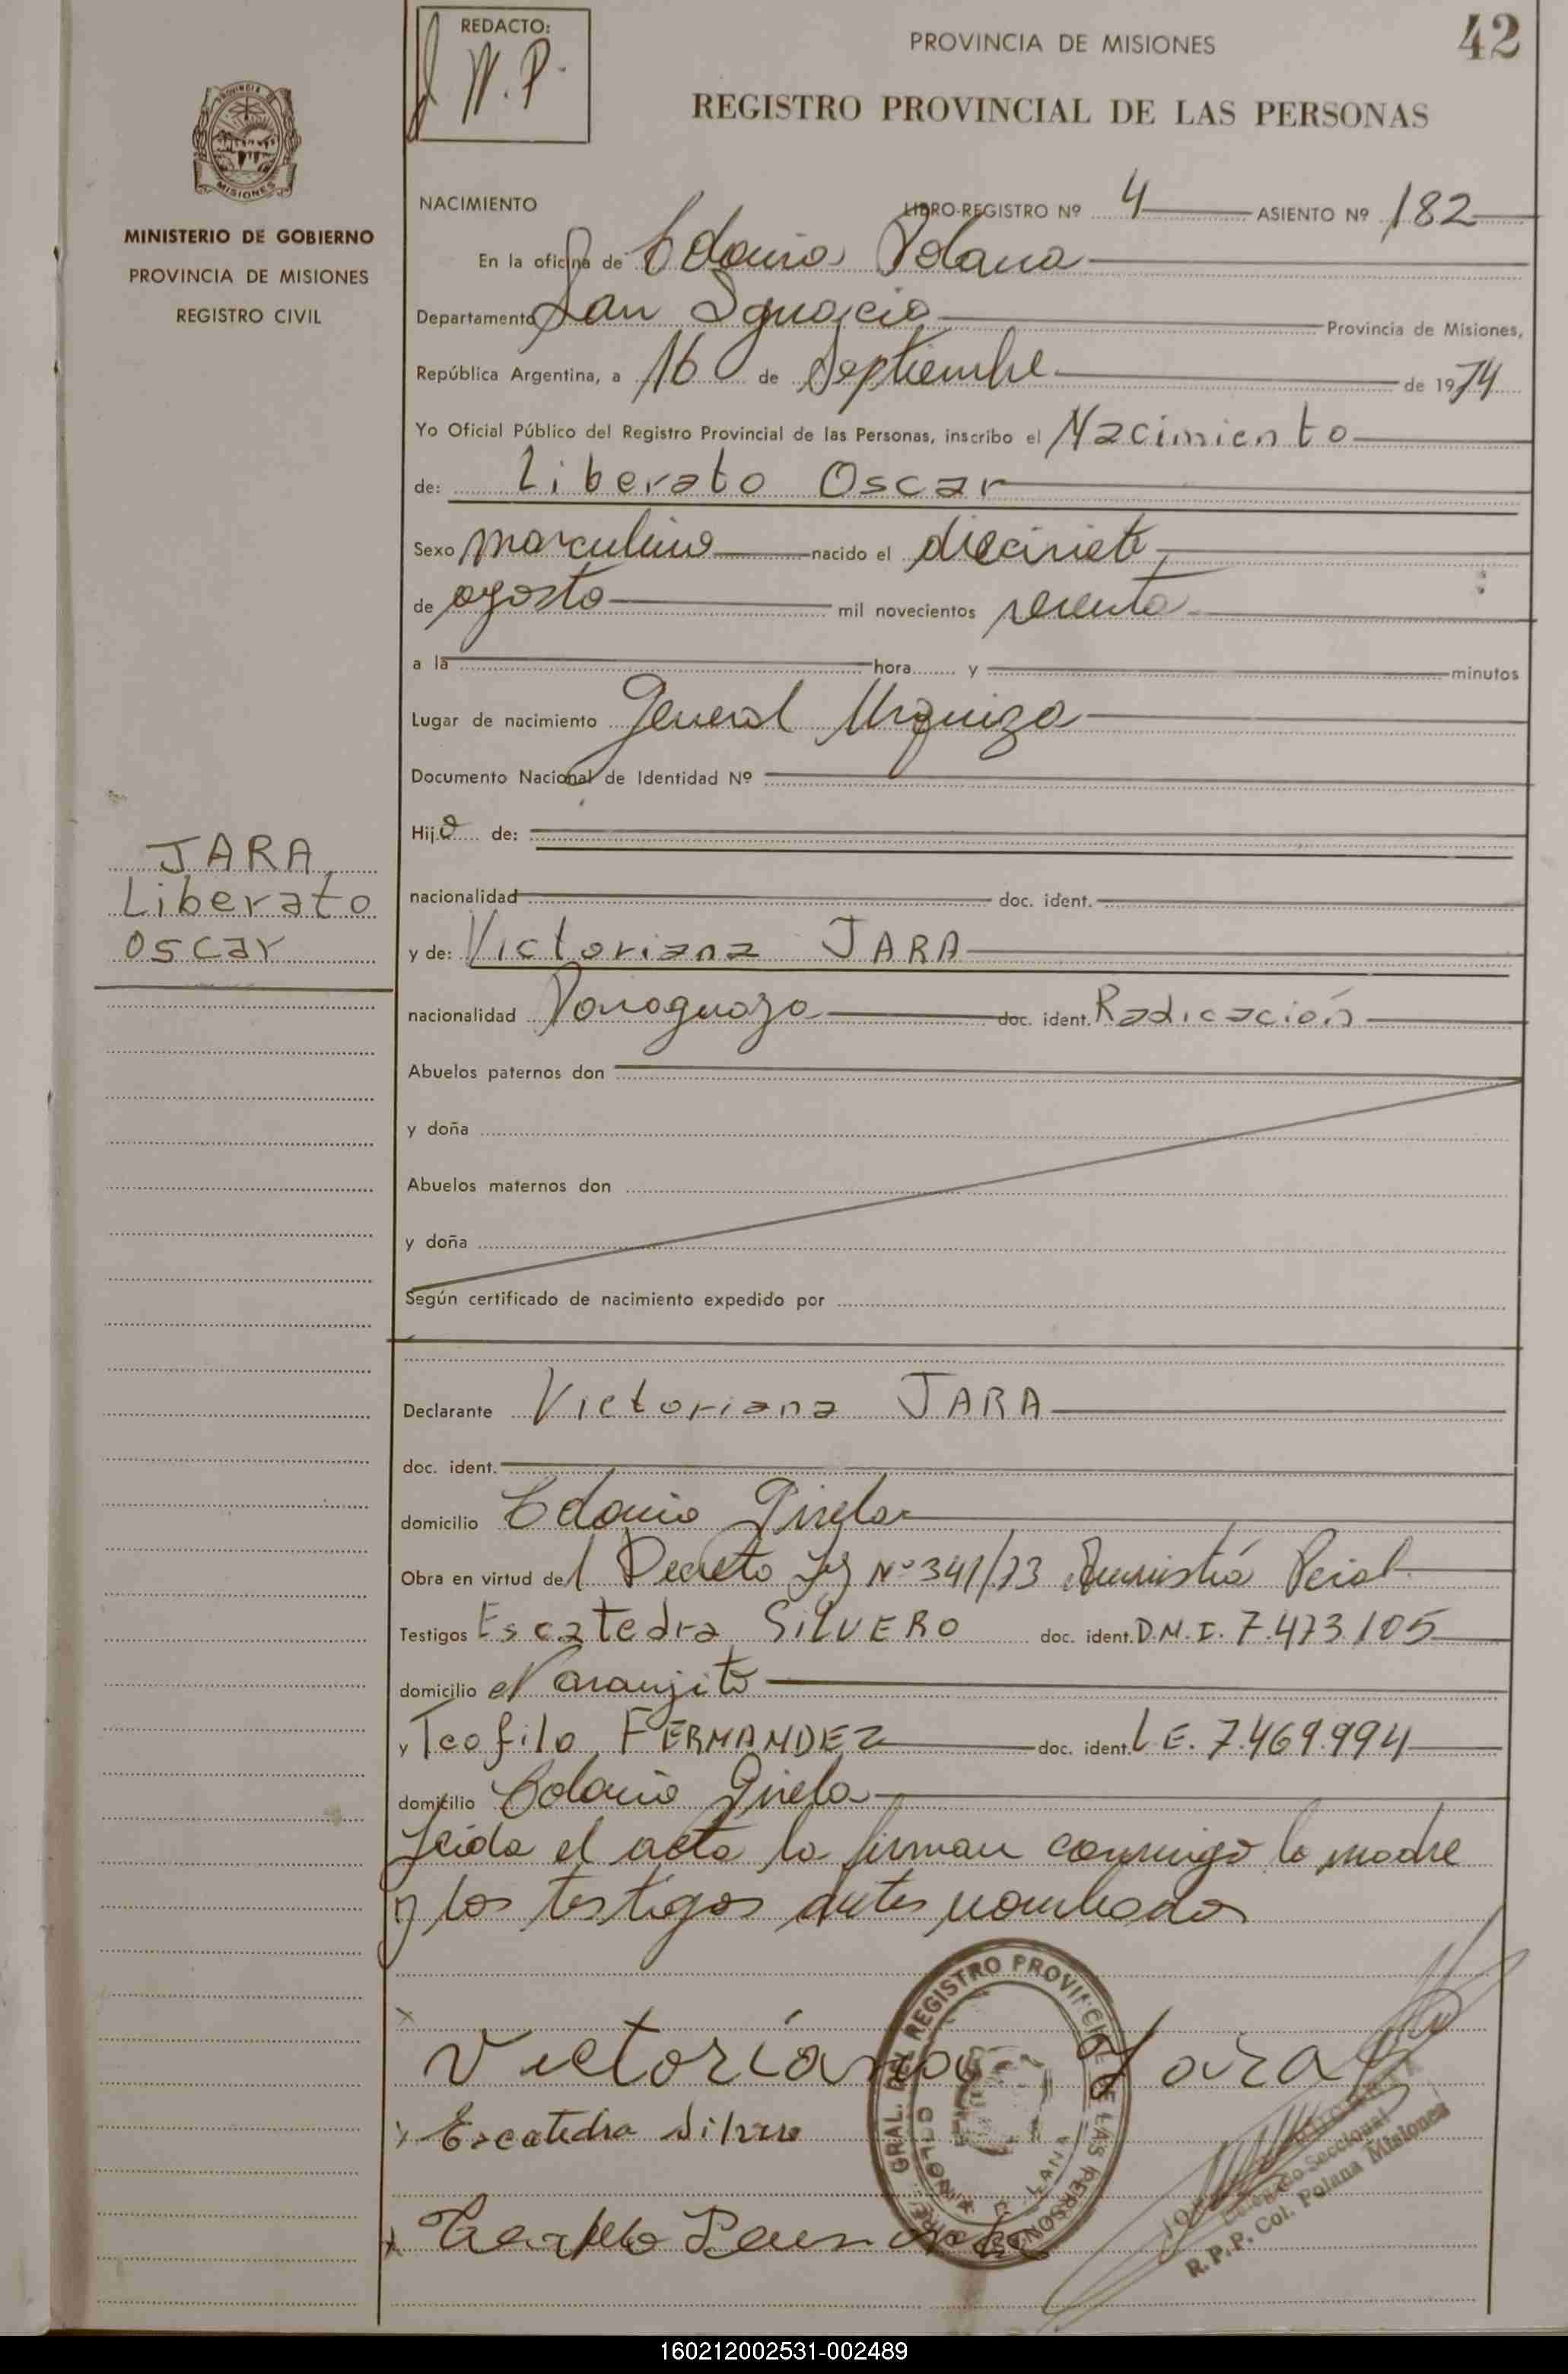 REDACTO:
PROVINCIA DE MISIONES
42
REGISTRO PROVINCIAL DE LAS PERSONAS
MISIONES
MINISTERIO DE GOBIERNO
PROVINCIA DE MISIONES
REGISTRO CIVIL
NACIMIENTO LIBRO-REGISTRO Nº 4 ASIENTO Nº 182
En la oficina de Colonia Polana
Departamento San Ignacio Provincia de Misiones,
República Argentina, a 16 de Septiembre de 1974
Yo Oficial Público del Registro Provincial de las Personas, inscribo el Nacimiento
de: Liberato Oscar
Sexo masculino nacido el diecisiete
de agosto mil novecientos sesenta
a la hora y minutos
Lugar de nacimiento General Urquiza
Documento Nacional de Identidad Nº
Hijo de:
JARA
Liberato
Oscar
nacionalidad doc. ident.
y de: Victoriana JARA
nacionalidad Paraguaya doc. ident. Radicación
Abuelos paternos don
y doña
Abuelos maternos don
y doña
Según certificado de nacimiento expedido por
Declarante Victoriana JARA
doc. ident.
domicilio Colonia Gisela
Obra en virtud del Decreto Ley Nº 341/73 Amnistía
Testigos Escatedra SILVERO doc. ident. D.N.I. 7.473.105
domicilio el Naranjito
y Teofilo FERNANDEZ doc. ident. L E. 7.469.994
domicilio Colonia Gisela
Leida el acta la firman conmigo la madre
y los testigos antes nombrados
Victoriana Jara
Escatedra Silvero
GRAL. DEL REGISTRO PROVINCIAL DE LAS PERSONAS
Delegado Seccional
R. P. P. Col. Polana Misiones
160212002531-002489